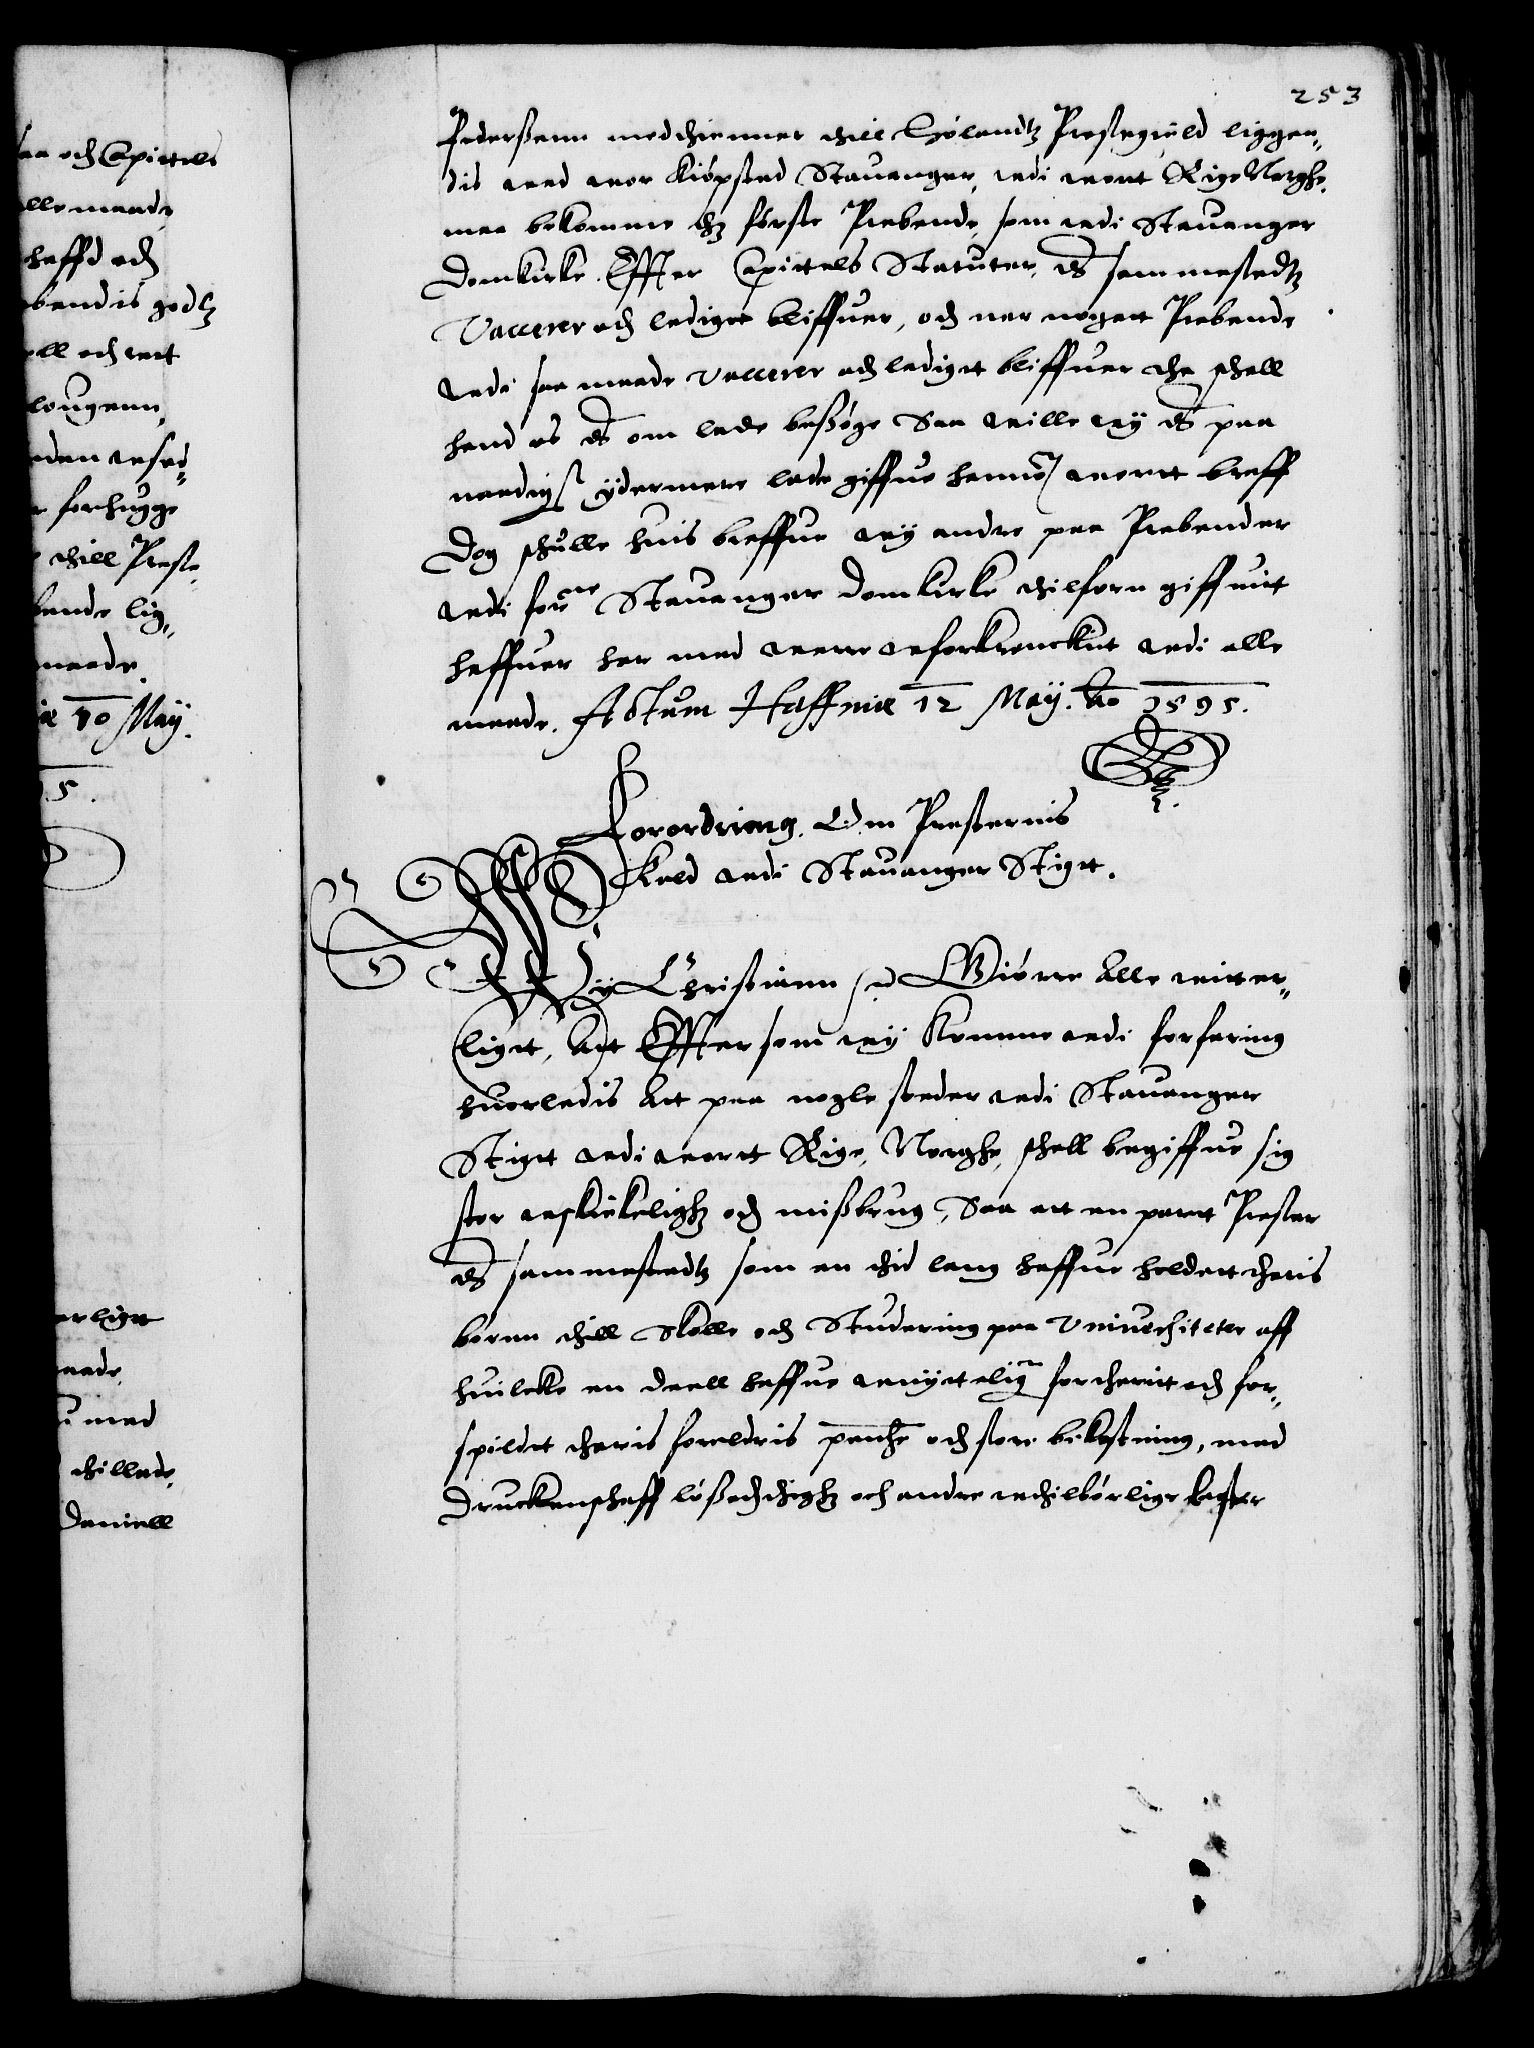 253
Pederßenn medthienner thill Hølandtz Prestegield liggen„
dis wed wor Kiøpsted Stauanger, udi wort Rige Norghe,
maa bekomme thz første Prebende, som udi Stauanger
Domkirke. Effter Capittels Statuter, ds sammestedtz
Vaccerer och ledigtt bliffuer, och nar nogett Prebende
udi saa maade vaccerer och ledigtt bliffuer tha schall
hand os ds om lade beßøge Saa wille wy ds paa
naadigst ydermere lade giffue hannom wortt breff
Dog schulle huis breffue wy andre paa Prebender
udi forne Stauanger Domkirke thilforn giffuitt
haffuer her med were uforkrenckit udi alle
maade. Actum Haffniæ 12 May. Ao 1595.
Forordning. Om Presternis
Kald udi Stauanger Stigtt.
Wy Christiann Giøre Alle witter„
ligtt, Att Effter som wy Komme udi forfaring
huorledis Att paa nogle steder udi Stauanger
Stigtt udi wortt Rige, Norghe, schall begiffue sig
stor uschickelighz och mißbrug, Saa att en partt Prester
ds sammestedtz som en thid lang haffue holdett theris
børnn thill Skolle och Studering paa Vniuerchiteter aff
huilcke en deell haffue unytteligen fortherit och for„
spildtt theris foreldris penge och store bekostning, med
Druckenschaff løßachtighz och andre utilbørlige laster
och Capittels
alle maade,
haffd och
bendis godtz
all och rett
lougenn,
forhugge
thill Preste„
bende lig„
maade.
10 May.
5.
erligtt
maade,
med
thillade,
Daniell